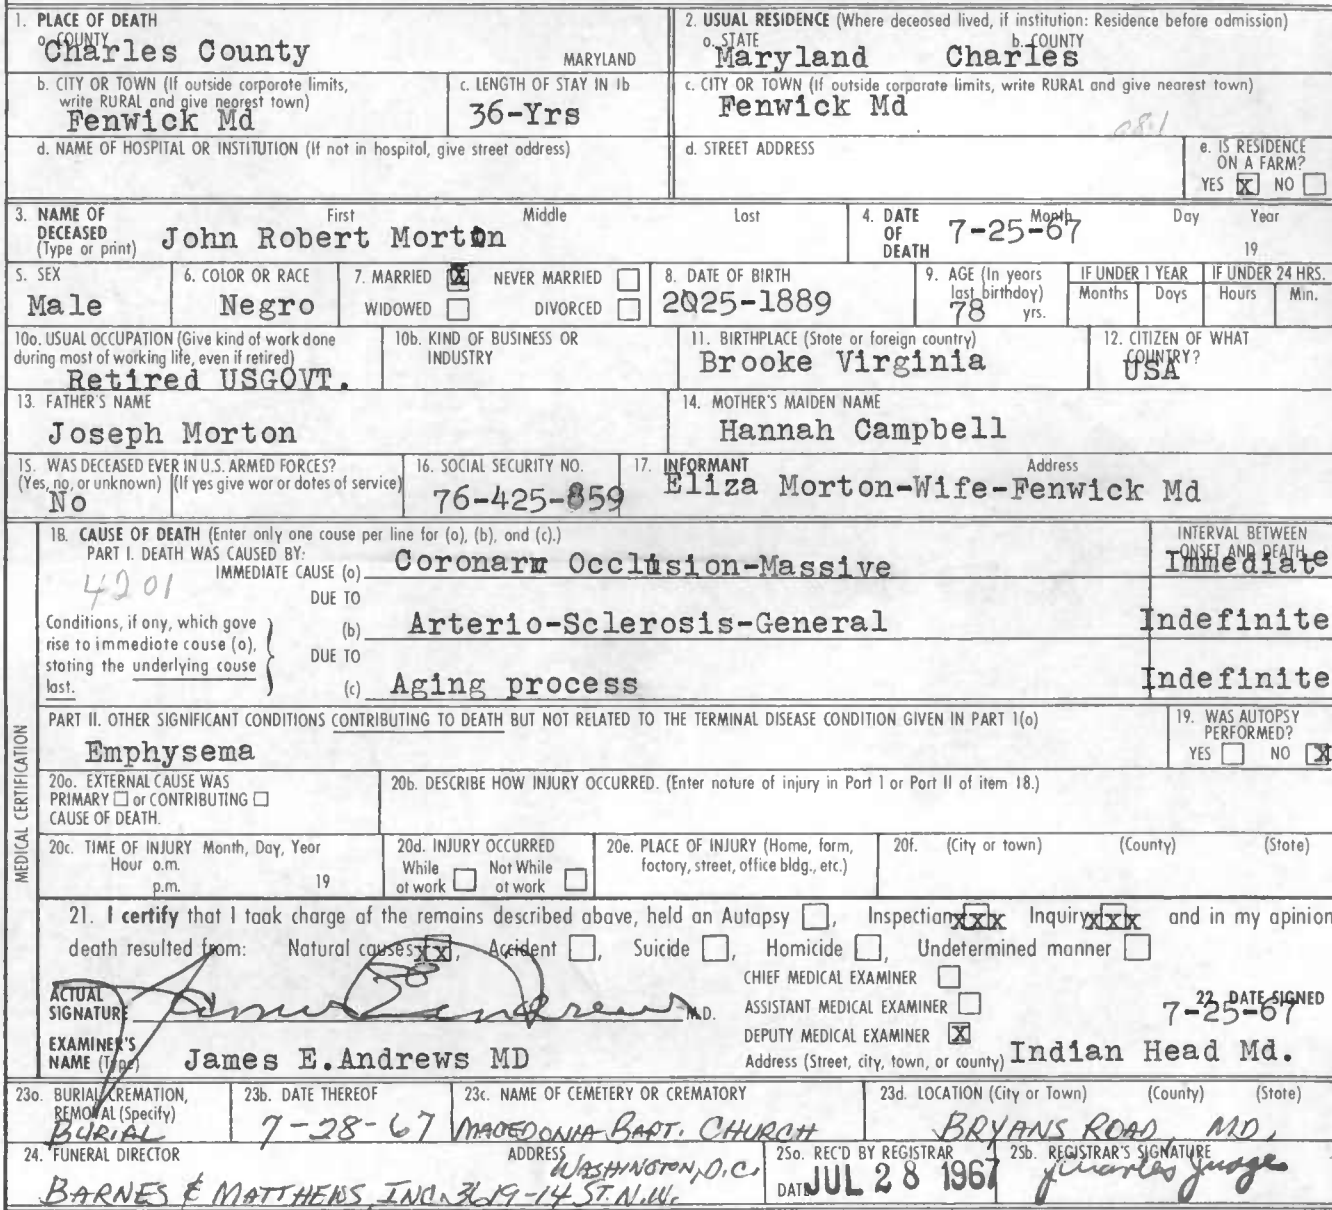 1. PLACE OF DEATH
a. COUNTY
Charles County MARYLAND
2. USUAL RESIDENCE (Where deceased lived, if institution: Residence before admission)
a. STATE b. COUNTY
Maryland Charles
b. CITY OR TOWN (If outside corporate limits,
write RURAL and give nearest town)
Fenwick Md
c. LENGTH OF STAY IN 1b
36-Yrs
c. CITY OR TOWN (If outside corporate limits, write RURAL and give nearest town)
Fenwick Md
d. NAME OF HOSPITAL OR INSTITUTION (If not in hospital, give street address)
d. STREET ADDRESS
e. IS RESIDENCE
ON A FARM?
YES X NO
3. NAME OF
DECEASED
(Type or print)
First Middle Last
John Robert Morton
4. DATE
OF
DEATH
Month Day Year
7-25-67
19
5. SEX
Male
6. COLOR OR RACE
Negro
7. MARRIED X NEVER MARRIED
WIDOWED DIVORCED
8. DATE OF BIRTH
2025-1889
9. AGE (In years
last birthday)
78 yrs.
IF UNDER 1 YEAR
Months Days
IF UNDER 24 HRS.
Hours Min.
10a. USUAL OCCUPATION (Give kind of work done
during most of working life, even if retired)
Retired USGOVT.
10b. KIND OF BUSINESS OR
INDUSTRY
11. BIRTHPLACE (State or foreign country)
Brooke Virginia
12. CITIZEN OF WHAT
COUNTRY?
USA
13. FATHER'S NAME
Joseph Morton
14. MOTHER'S MAIDEN NAME
Hannah Campbell
15. WAS DECEASED EVER IN U.S. ARMED FORCES?
(Yes, no, or unknown) (If yes give war or dates of service)
No
16. SOCIAL SECURITY NO.
76-425-859
17. INFORMANT Address
Eliza Morton-Wife-Fenwick Md
MEDICAL CERTIFICATION
18. CAUSE OF DEATH (Enter only one cause per line for (a), (b), and (c).)
PART I. DEATH WAS CAUSED BY:
IMMEDIATE CAUSE (a) Coronarm Occlusion-Massive
INTERVAL BETWEEN
ONSET AND DEATH
Immediate
4201
DUE TO
Conditions, if any, which gave
rise to immediate cause (a),
stating the underlying cause
last.
(b) Arterio-Sclerosis-General Indefinite
DUE TO
(c) Aging process Indefinite
PART II. OTHER SIGNIFICANT CONDITIONS CONTRIBUTING TO DEATH BUT NOT RELATED TO THE TERMINAL DISEASE CONDITION GIVEN IN PART 1(a)
Emphysema
19. WAS AUTOPSY
PERFORMED?
YES NO X
20a. EXTERNAL CAUSE WAS
PRIMARY or CONTRIBUTING
CAUSE OF DEATH.
20b. DESCRIBE HOW INJURY OCCURRED. (Enter nature of injury in Part I or Part II of item 18.)
20c. TIME OF INJURY Month, Day, Year
Hour a.m.
p.m. 19
20d. INJURY OCCURRED
While Not While
at work at work
20e. PLACE OF INJURY (Home, form,
factory, street, office bldg., etc.)
20f. (City or town) (County) (State)
21. I certify that I took charge of the remains described above, held an Autopsy , Inspection xxx Inquiry xxx and in my opinion
death resulted from: Natural causes xx, Accident , Suicide , Homicide , Undetermined manner
ACTUAL
SIGNATURE James E Andrews M.D.
CHIEF MEDICAL EXAMINER
ASSISTANT MEDICAL EXAMINER
DEPUTY MEDICAL EXAMINER X
22. DATE SIGNED
7-25-67
EXAMINER'S
NAME (Type) James E.Andrews MD
Address (Street, city, town, or county) Indian Head Md.
23a. BURIAL, CREMATION,
REMOVAL (Specify)
BURIAL
23b. DATE THEREOF
7-28-67
23c. NAME OF CEMETERY OR CREMATORY
MACEDONIA BAPT. CHURCH
23d. LOCATION (City or Town) (County) (State)
BRYANS ROAD, MD.
24. FUNERAL DIRECTOR ADDRESS
WASHINGTON, D.C.
BARNES & MATTHEWS, INC. 3619-14 ST. N.W.
25a. REC'D BY REGISTRAR
DATE JUL 28 1967
25b. REGISTRAR'S SIGNATURE
Charles Judge